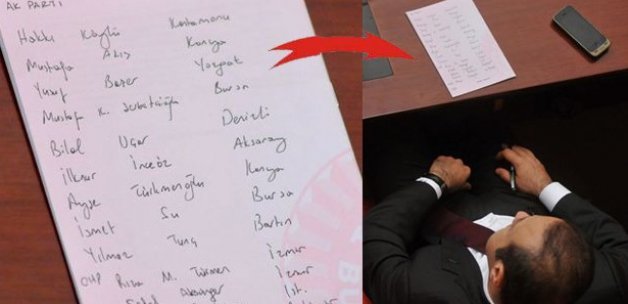 AK PARTİ
Hakkı Köylü Kastamonu
Mustafa Akış Konya
Yusuf Başer Yozgat
Mustafa K. Bursa
Bilal Uçar Denizli
İlknur İnceöz Aksaray
Ayşe Türkmenoğlu Konya
İsmet Su Bursa
Yılmaz Tunç Bartın
CHP Rıza M. Türmen İzmir
Aksünger İzmir
İst.